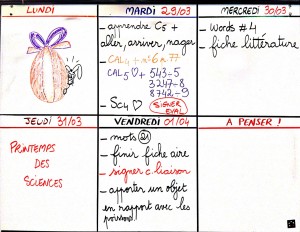 LUNDI
MARDI 29/03
- apprendre C5 +
aller, arriver, nager
CAL4 + n°6 p 77
CAL5 ♡ + 543-5
3247-8
8742-9
- Sc4 ♡
SIGNER
EVAL
MERCREDI 30/03
- Words #4
- fiche littérature
JEUDI 31/03
PRINTEMPS
DES
SCIENCES
VENDREDI 01/04
- mots 21
- finir fiche aire
- signer c. liaison
- apporter un objet
en rapport avec les
poissons
A PENSER !